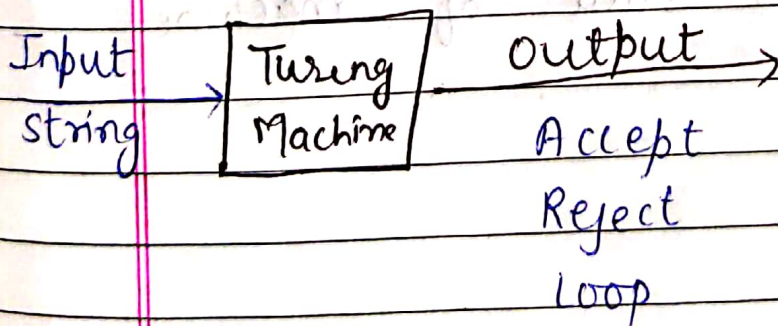 Input
string
Turing
Machine
output
Accept
Reject
Loop